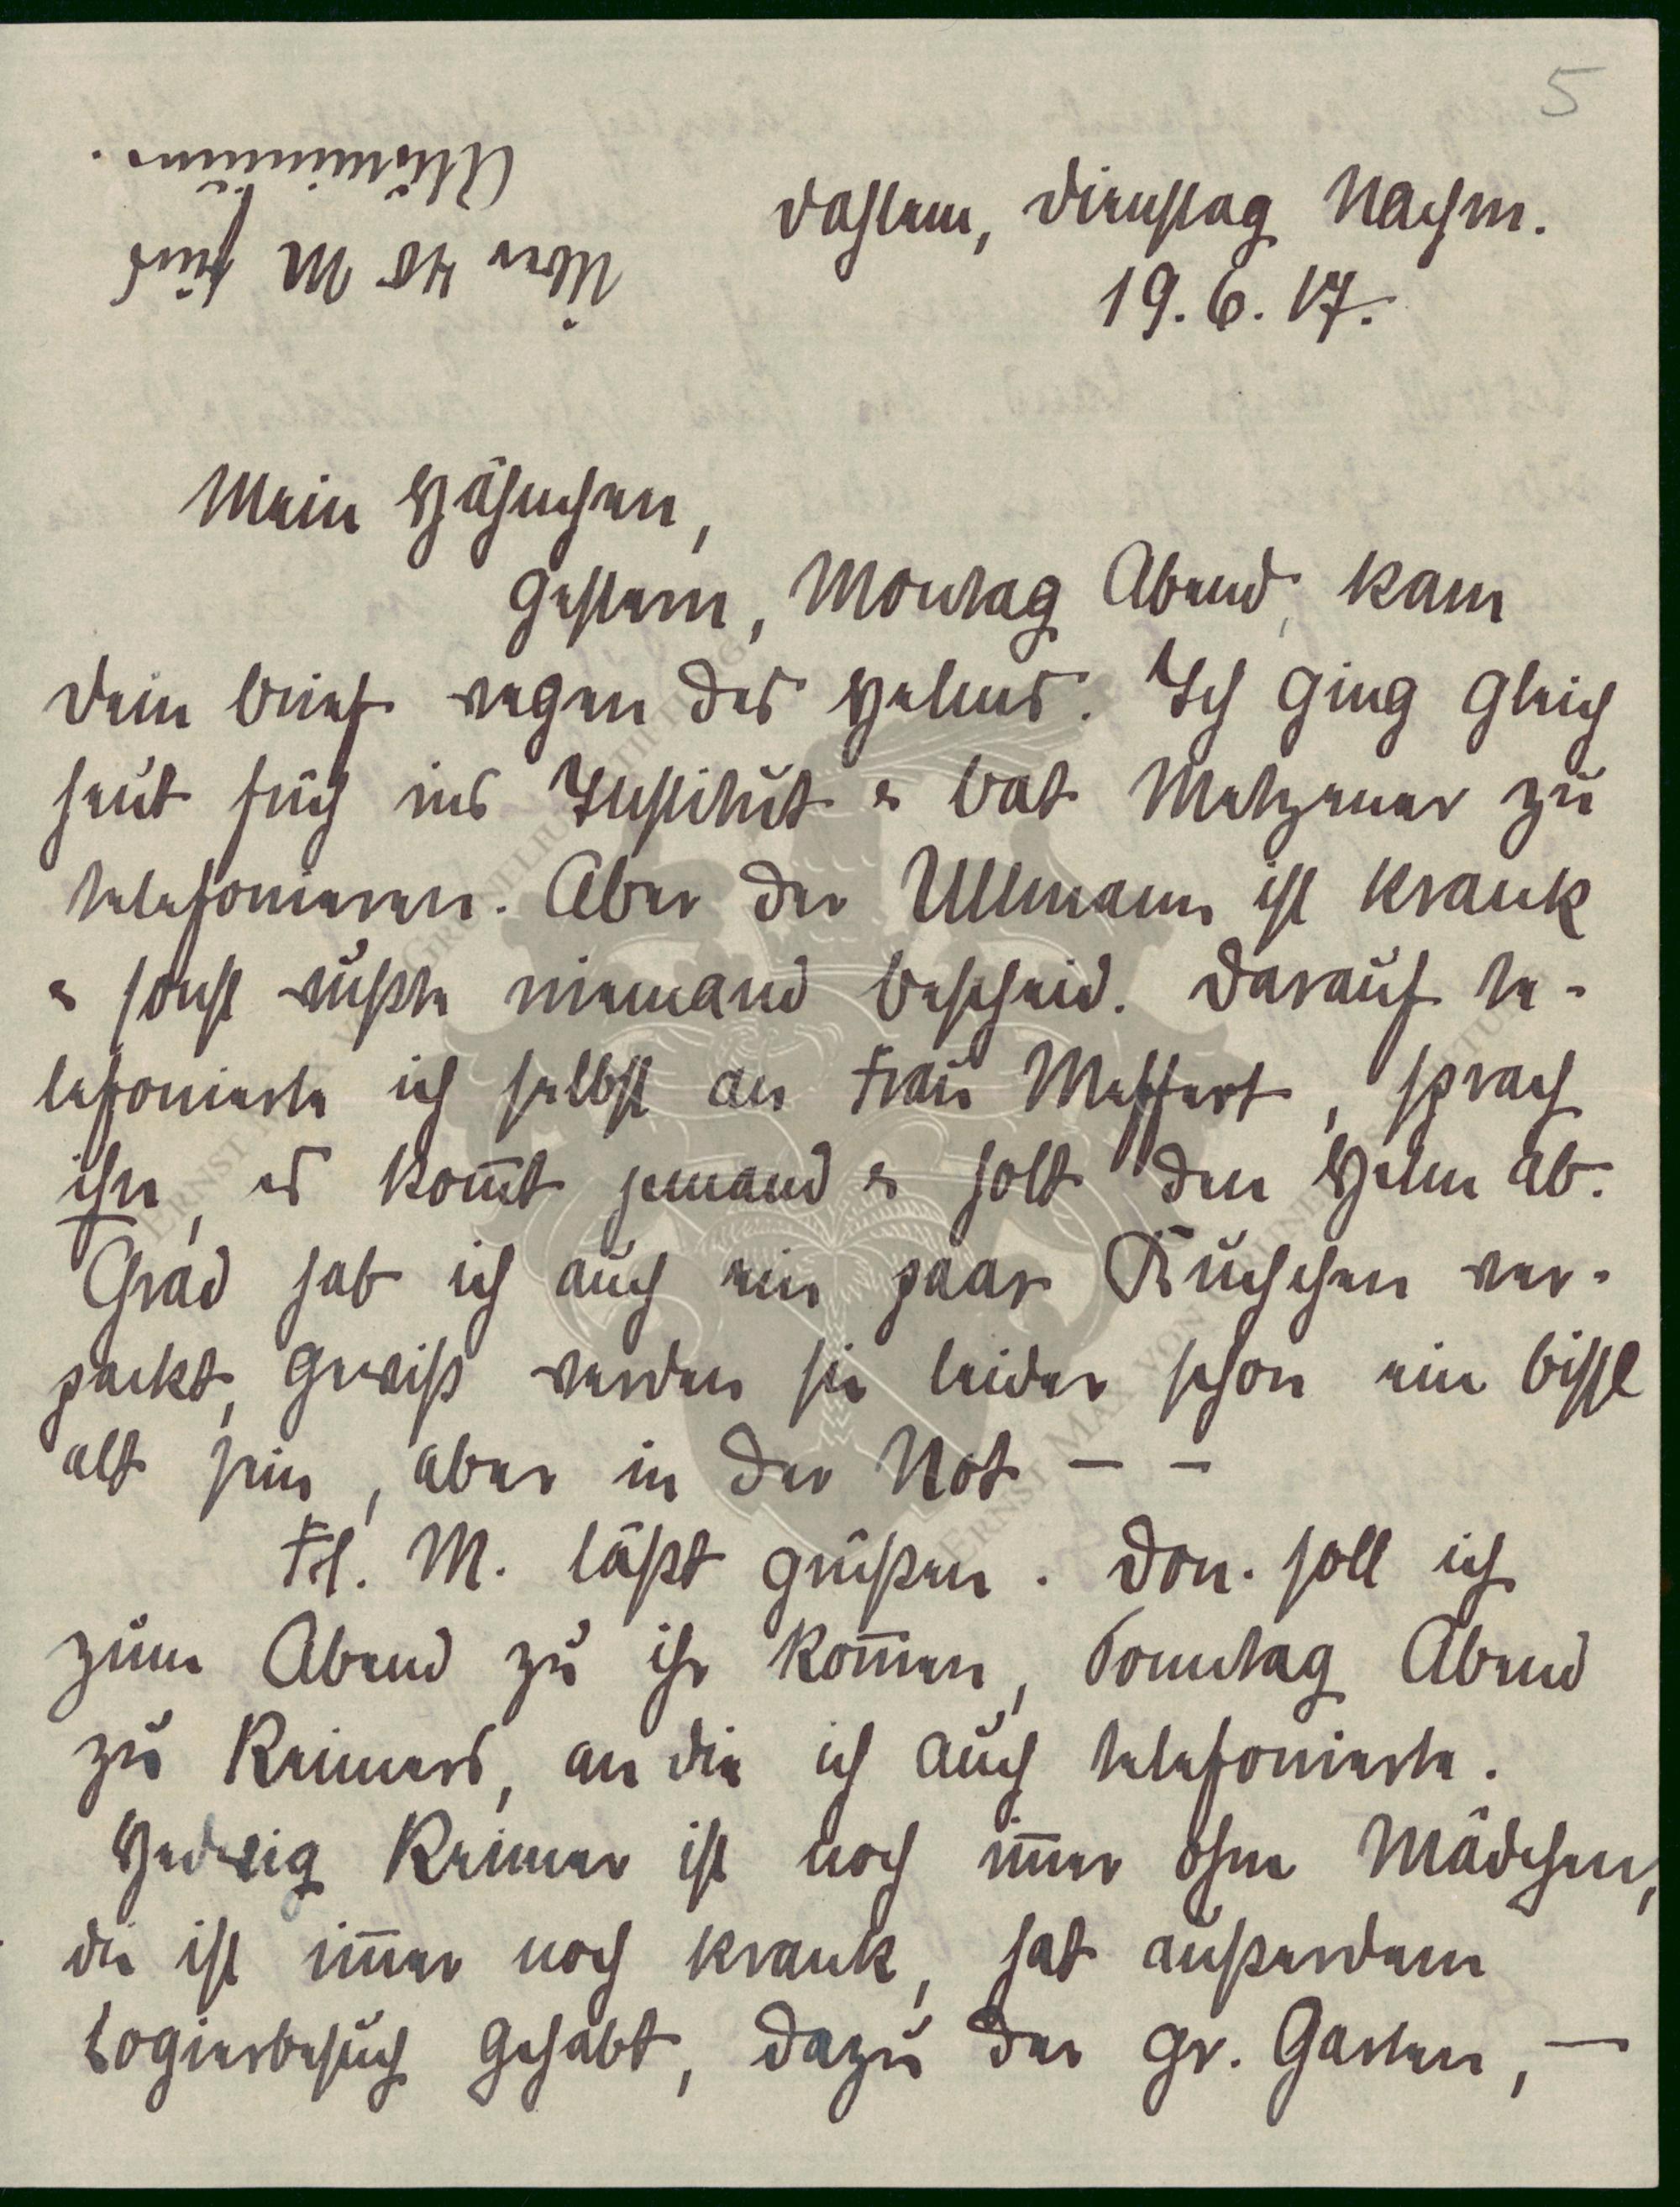 5
Dahlem, Dienstag Nachm.
19. 6. 17.
Über 40 M sind
Mein Hähnchen,
Gestern, Montag Abend, kam
Dein Brief wegen des Helms. Ich ging gleich
heut früh ins Institut & bat Metzener zu
telefonieren. Aber der Ullmann ist krank
& sonst wußte niemand Bescheid. Darauf te-
lefonierte ich selbst an Frau Meffert, sprach
ihn, es kom̅t jemand & holt den Helm ab.
Grad hab ich auch ein paar Kuchchen ver-
packt, gewiß werden sie leider schon ein bissl
alt sein, aber in der Not — —
Frl. M. läßt grüßen. Don. soll ich
zum Abend zu ihr kom̅en, Sonntag Abend
zu Reimers, an die ich auch telefonierte.
Hedwig Reimer ist noch im̅er ohne Mädchen,
die ist im̅er noch krank, hat außerdem
Logierbesuch gehabt, dazu der gr. Garten, —